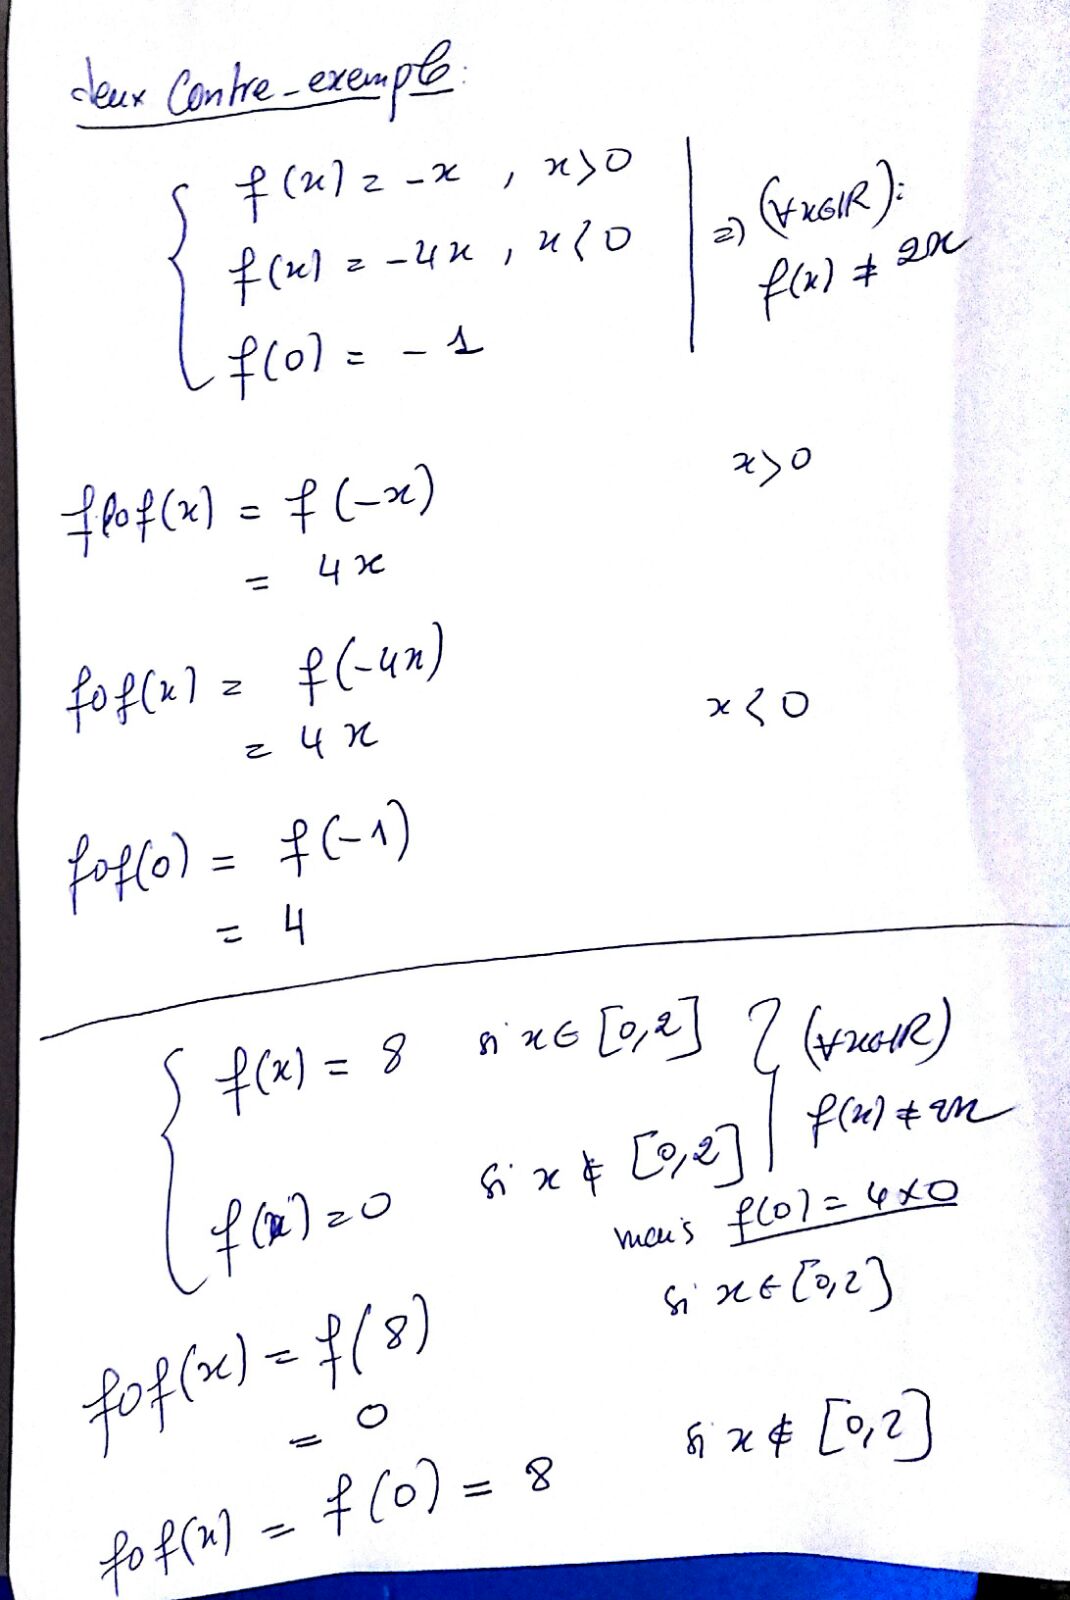 deux Contre-exemple:
f(x) = -x , x>0
f(x) = -4x , x<0
f(0) = -1
⇒ (∀x∈ℝ):
f(x) ≠ 2x
fof(x) = f(-x) x>0
= 4x
fof(x) = f(-4x)
= 4x x<0
fof(0) = f(-1)
= 4
f(x) = 8 si x∈ [0,2]
f(x) = 0 si x ∉ [0,2]
(∀x∈ℝ)
f(x) ≠ 2x
mais f(0) = 4×0
fof(x) = f(8) si x∈[0,2]
= 0
fof(x) = f(0) = 8 si x ∉ [0,2]